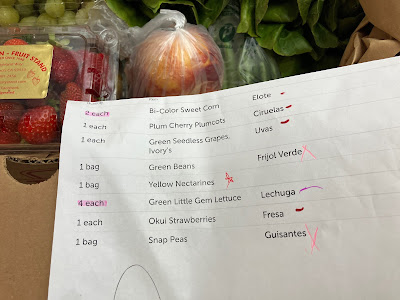 N - FRUIT STAND
2 each Bi-Color Sweet Corn Elote
1 each Plum Cherry Plumcots Ciruelas
1 each Green Seedless Grapes, Uvas
Ivory's
1 bag Green Beans Frijol Verde
1 bag Yellow Nectarines
4 each Green Little Gem Lettuce Lechuga
1 each Okui Strawberries Fresa
1 bag Snap Peas Guisantes